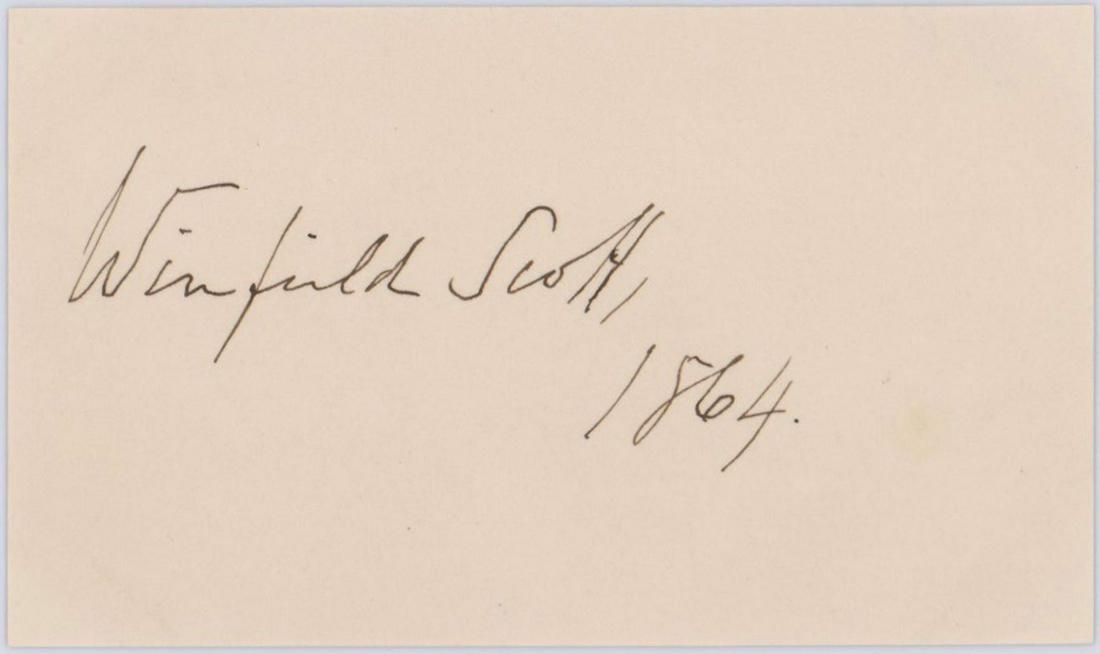 Winfield Scott,
1864.